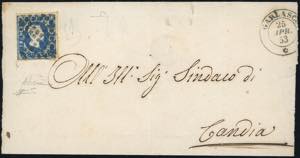 GARLASCO
25
APR.
53
All' Ill. Sig. Sindaco di
Candia